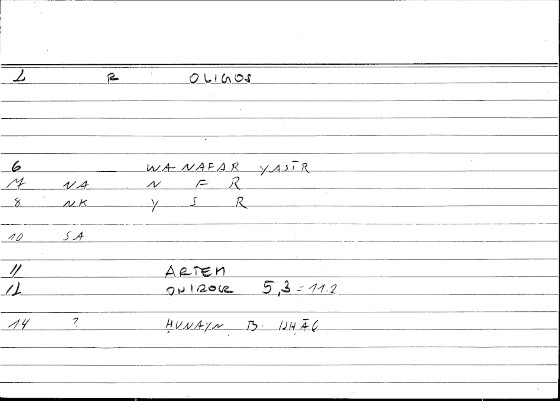 2 R OLIGOS
6 WA-NAFAR YASĪR
7 NA N F R
8 NK Y S R
10 SA
11 ARTEM
12 ONIROCR 5,3 = 11.2
14 ? ḤUNAYN B. ISḤĀQ